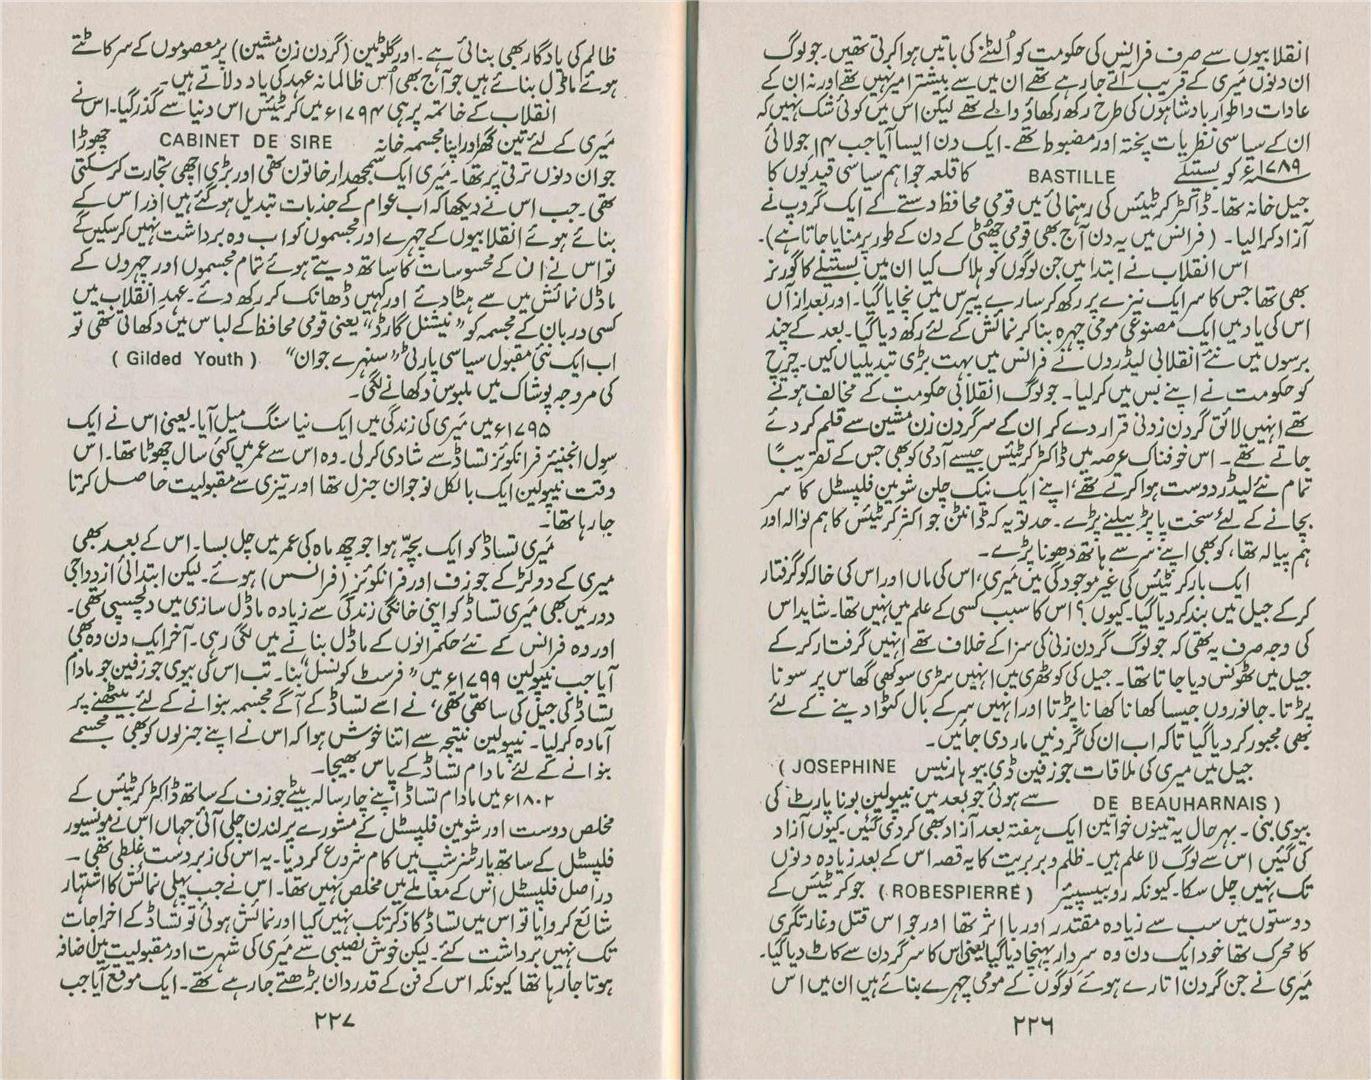 انقلابیوں سے صرف فرانس کی حکومت کو اُلٹنے کی باتیں ہوا کرتی تھیں۔ جو لوگ
ان دنوں میری کے قریب آتے جا رہے تھے ان میں سے بیشتر امیر نہیں تھے اور نہ ان کے
عادات و اطوار بادشاہوں کی طرح رکھ رکھاؤ والے تھے لیکن اس میں کوئی شک نہیں کہ
ان کے سیاسی نظریات پختہ اور مضبوط تھے۔ ایک دن ایسا آیا جب ۱۴ جولائی
۱۷۸۹ء کو بستیلے BASTILLE کا قلعہ جو اہم سیاسی قیدیوں کا
جیل خانہ تھا۔ ڈاکٹر کرٹیئس کی رہنمائی میں قومی محافظ دستے کے ایک گروپ نے
آزاد کرا لیا۔ (فرانس میں یہ دن آج بھی قومی چھٹی کے دن کے طور پر منایا جاتا ہے)۔
اس انقلاب نے ابتدا میں جن لوگوں کو ہلاک کیا ان میں بستیلے کا گورنر
بھی تھا جس کا سر ایک نیزے پر رکھ کر سارے پیرس میں نچایا گیا۔ اور بعد ازاں
اس کی یاد میں ایک مصنوعی مومی چہرہ بنا کر نمائش کے لئے رکھ دیا گیا۔ بعد کے چند
برسوں میں نئے انقلابی لیڈروں نے فرانس میں بہت بڑی تبدیلیاں کیں۔ چرچ
کو حکومت نے اپنے بس میں کر لیا۔ جو لوگ انقلابی حکومت کے مخالف ہوتے
تھے انہیں لائق گردن زدنی قرار دے کر ان کے سر گردن زن مشین سے قلم کر دئے
جاتے تھے۔ اس خوفناک عرصہ میں ڈاکٹر کرٹیئس جیسے آدمی کو بھی جس کے تقریباً
تمام نئے لیڈر دوست ہوا کرتے تھے، اپنے ایک نیک چلن شومین فلپسٹل کا سر
بچانے کے لئے سخت پاپڑ بیلنے پڑے۔ حد تو یہ کہ ڈانٹن جو اکثر کرٹیئس کا ہم نوالہ اور
ہم پیالہ تھا، کو بھی اپنے سر سے ہاتھ دھونا پڑے۔
ایک بار کرٹیئس کی غیر موجودگی میں میری، اس کی ماں اور اس کی خالہ کو گرفتار
کر کے جیل میں بند کر دیا گیا۔ کیوں؟ اس کا سبب کسی کے علم میں نہیں تھا۔ شاید اس
کی وجہ صرف یہ تھی کہ جو لوگ گردن زنی کی سزا کے خلاف تھے انہیں گرفتار کر کے
جیل میں ٹھونس دیا جاتا تھا۔ جیل کی کوٹھری میں انہیں سڑی سوکھی گھاس پر سونا
پڑتا۔ جانوروں جیسا کھانا کھانا پڑتا اور انہیں سر کے بال کٹوا دینے کے لئے
بھی مجبور کر دیا گیا تاکہ اب ان کی گردنیں مار دی جائیں۔
جیل میں میری کی ملاقات جوزفین ڈی بیوہارنیس (JOSEPHINE
DE BEAUHARNAIS) سے ہوئی جو بعد میں نپولین بونا پارٹ کی
بیوی بنی۔ بہرحال یہ تینوں خواتین ایک ہفتہ بعد آزاد بھی کر دی گئیں۔ کیوں آزاد
کی گئیں اس سے لوگ لا علم ہیں۔ ظلم و بربریت کا یہ قصہ اس کے بعد زیادہ دنوں
تک نہیں چل سکا۔ کیونکہ روبیسپیئر (ROBESPIERRE) جو کرٹیئس کے
دوستوں میں سب سے زیادہ مقتدر اور با اثر تھا اور جو اس قتل و غارتگری
کا محرک تھا خود ایک دن وہ سردار پہنچا دیا گیا یعنی اس کا سر گردن سے کاٹ دیا گیا۔
میری نے جن گردن اتارے ہوئے لوگوں کے مومی چہرے بنائے ہیں ان میں اس
۲۲۶
ظالم کی یادگار بھی بنائی ہے۔ اور گلوٹین (گردن زن مشین) پر معصوموں کے سر کاٹتے
ہوئے ماڈل بنائے ہیں جو آج بھی اُس ظالمانہ عہد کی یاد دلاتے ہیں۔
انقلاب کے خاتمہ پر ہی ۱۷۹۴ء میں کرٹیئس اس دنیا سے گذر گیا۔ اس نے
میری کے لئے تین گھر اور اپنا مجسمہ خانہ CABINET DE SIRE چھوڑا
جو ان دنوں ترقی پر تھا۔ میری ایک سمجھدار خاتون تھی اور بڑی اچھی تجارت کر سکتی
تھی۔ جب اس نے دیکھا کہ اب عوام کے جذبات تبدیل ہو گئے ہیں اور اس کے
بنائے ہوئے انقلابیوں کے چہرے اور مجسموں کو اب وہ برداشت نہیں کر سکیں گے
تو اس نے ان کے محسوسات کا ساتھ دیتے ہوئے تمام مجسموں اور چہروں کے
ماڈل نمائش میں سے ہٹا دئے اور کہیں ڈھانک کر رکھ دئے۔ عہدِ انقلاب میں
کسی دربان کے مجسمہ کو "نیشنل گارڈ" یعنی قومی محافظ کے لباس میں دکھاتی تھی تو
اب ایک نئی مقبول سیاسی پارٹی "سنہرے جوان" (Gilded Youth)
کی مروجہ پوشاک میں ملبوس دکھانے لگی۔
۱۷۹۵ء میں میری کی زندگی میں ایک نیا سنگ میل آیا۔ یعنی اس نے ایک
سول انجنیئر فرانکوئز تساڈ سے شادی کر لی۔ وہ اس سے عمر میں کئی سال چھوٹا تھا۔ اس
وقت نیپولین ایک بالکل نوجوان جنرل تھا اور تیزی سے مقبولیت حاصل کرتا
جا رہا تھا۔
میری تساڈ کو ایک بچہ ہوا جو چھ ماہ کی عمر میں چل بسا۔ اس کے بعد بھی
میری کے دو لڑکے جوزف اور فرانکوئز (فرانسس) ہوئے۔ لیکن ابتدائی ازدواجی
دور میں بھی میری تساڈ کو اپنی خانگی زندگی سے زیادہ ماڈل سازی میں دلچسپی تھی۔
اور وہ فرانس کے نئے حکمرانوں کے ماڈل بنانے میں لگی رہی۔ آخر ایک دن وہ بھی
آیا جب نیپولین ۱۷۹۹ء میں "فرسٹ کونسل" بنا۔ تب اس کی بیوی جوزفین جو مادام
تساڈ کی جیل کی ساتھی تھی، نے اسے تساڈ کے آگے مجسمہ بنوانے کے لئے بیٹھنے پر
آمادہ کر لیا۔ نیپولین نتیجہ سے اتنا خوش ہوا کہ اس نے اپنے جنرلوں کو بھی مجسمے
بنوانے کے لئے مادام تساڈ کے پاس بھیجا۔
۱۸۰۲ء میں مادام تساڈ اپنے چار سالہ بیٹے جوزف کے ساتھ ڈاکٹر کرٹیئس کے
مخلص دوست اور شومین فلپسٹل کے مشورے پر لندن چلی آئی جہاں اس نے مونسیور
فلپسٹل کے ساتھ پارٹنرشپ میں کام شروع کر دیا۔ یہ اس کی زبردست غلطی تھی۔
در اصل فلپسٹل اس کے معاملے میں مخلص نہیں تھا۔ اس نے جب پہلی نمائش کا اشتہار
شائع کروایا تو اس میں تساڈ کا ذکر تک نہیں کیا اور نمائش ہوئی تو تساڈ کے اخراجات
تک نہیں برداشت کئے۔ لیکن خوش نصیبی سے میری کی شہرت اور مقبولیت میں اضافہ
ہوتا جا رہا تھا کیونکہ اس کے فن کے قدردان بڑھتے جا رہے تھے۔ ایک موقع آیا جب
۲۲۷